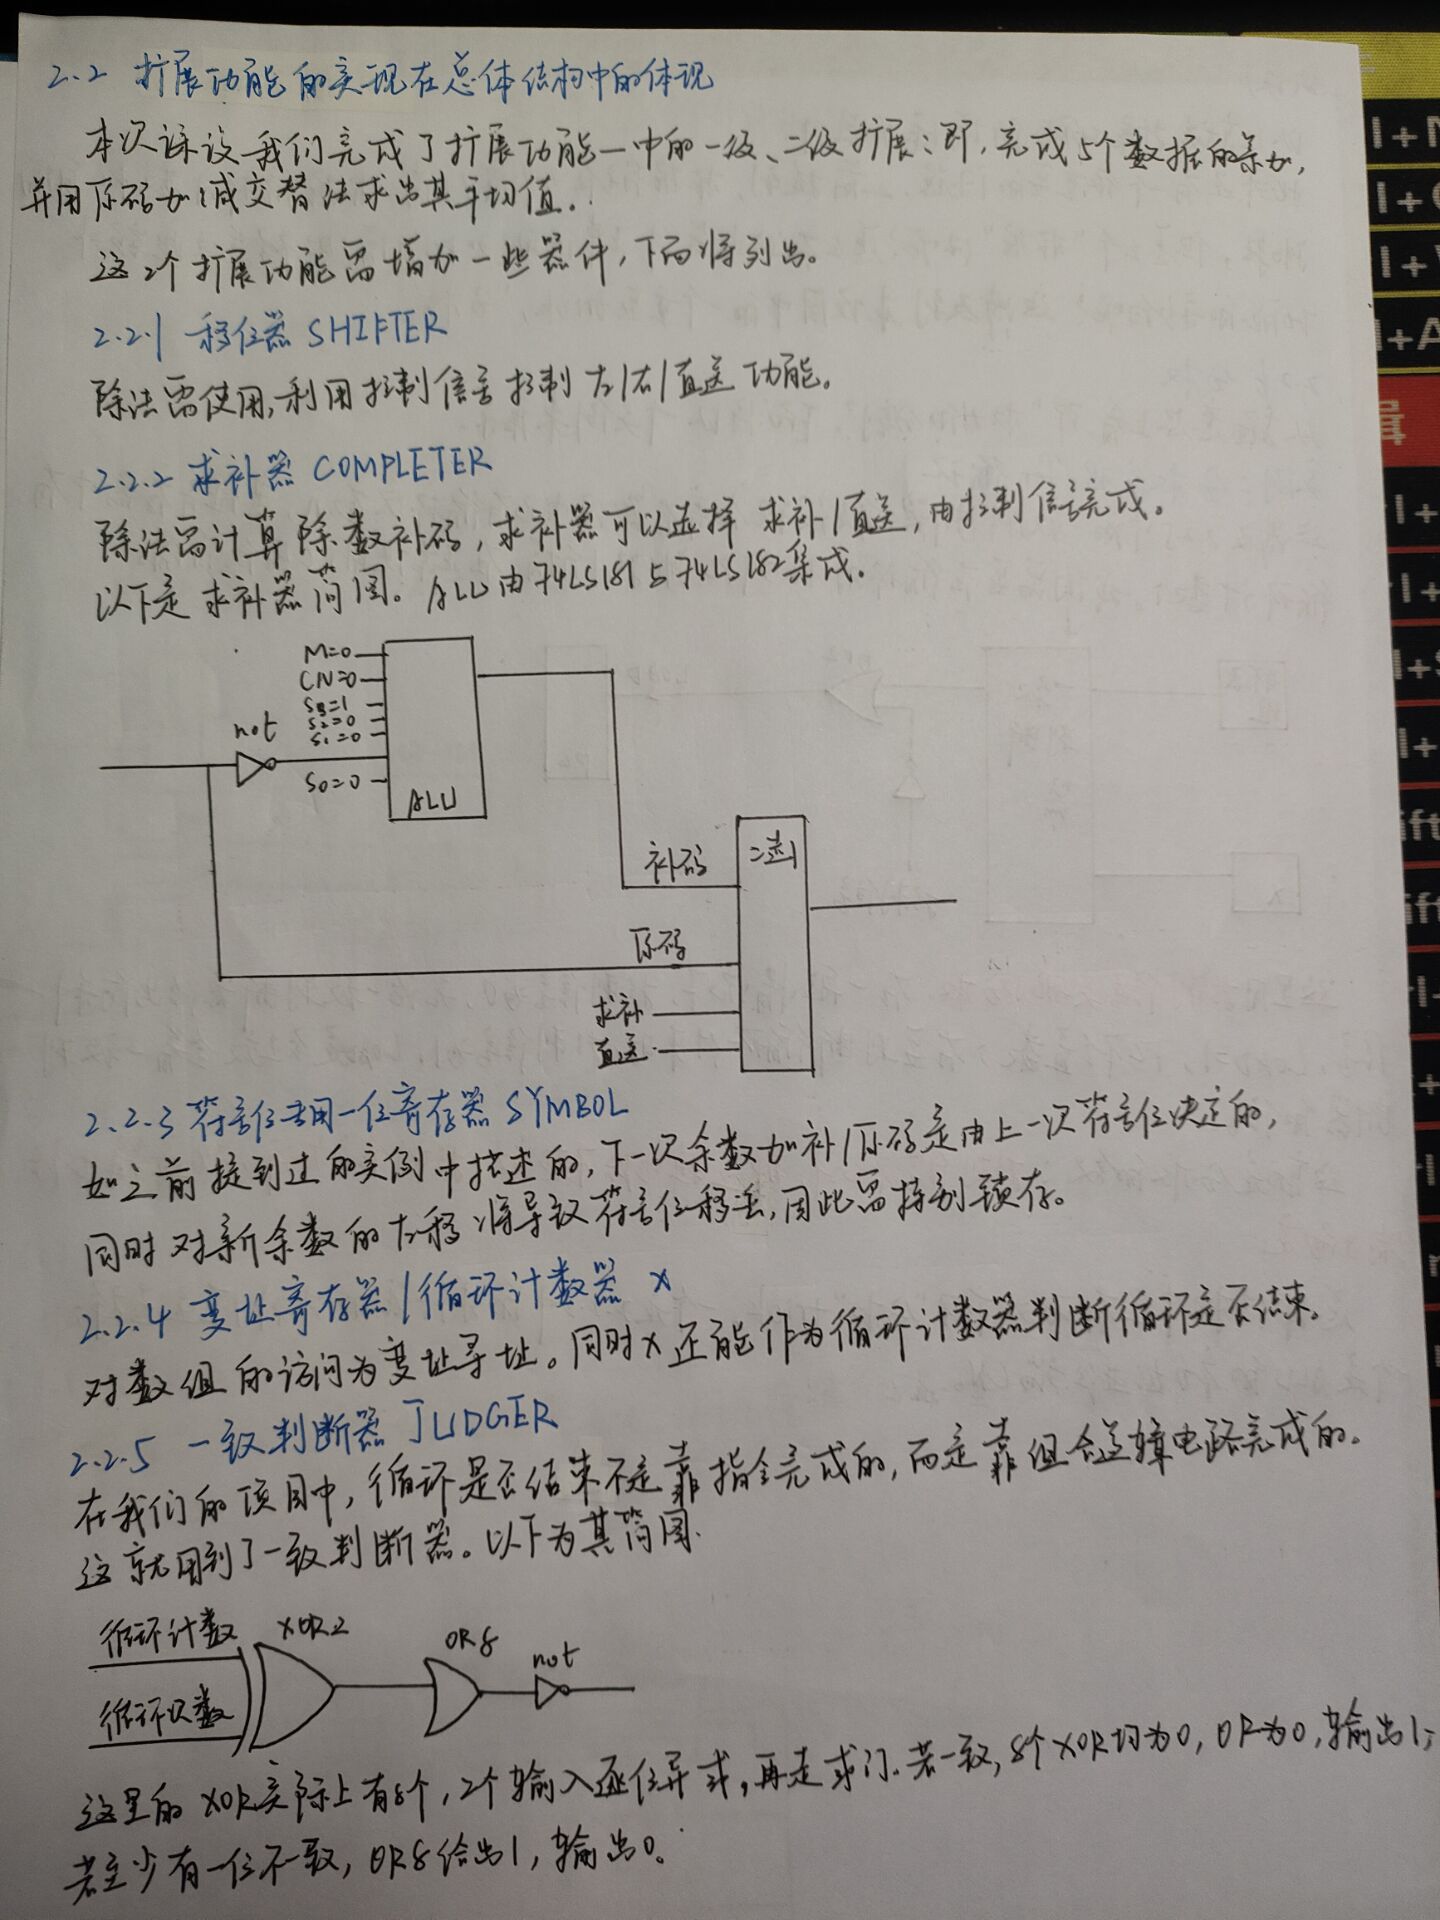 2.2 扩展功能的实现在总体结构中的体现
本次课设我们完成了扩展功能一中的一级、二级扩展:即,完成5个数据的累加,
并用原码加/减交替法求出其平均值.
这2个扩展功能需增加一些器件,下面将列出。
2.2.1 移位器 SHIFTER
除法需使用,利用控制信号控制 左/右/直送 功能。
2.2.2 求补器 COMPLETER
除法需计算除数补码,求补器可以选择 求补/直送,由控制信号完成。
以下是求补器简图。ALU由74LS181与74LS182集成.
M=0
CN=0
S3=1
S2=0
S1=0
not
S0=0
ALU
补码
二选1
原码
求补
直送
2.2.3 符号位专用一位寄存器 SYMBOL
如之前提到过的实例中描述的,下一次余数加补/原码是由上一次符号位决定的,
同时对新余数的左移将导致符号位移丢,因此需特别锁存。
2.2.4 变址寄存器/循环计数器 X
对数组的访问为变址寻址。同时X还能作为循环计数器判断循环是否结束。
2.2.5 一致判断器 JUDGER
在我们的项目中,循环是否结束不是靠指令完成的,而是靠组合逻辑电路完成的。
这就用到了一致判断器。以下为其简图.
循环计数
XOR2
OR8
not
循环次数
这里的XOR实际上有8个,2个输入逐位异或,再走或门.若一致,8个XOR均为0,OR为0,输出1;
若至少有一位不一致,OR8给出1,输出0。
I+
I+
I+
I+A
ift
ift